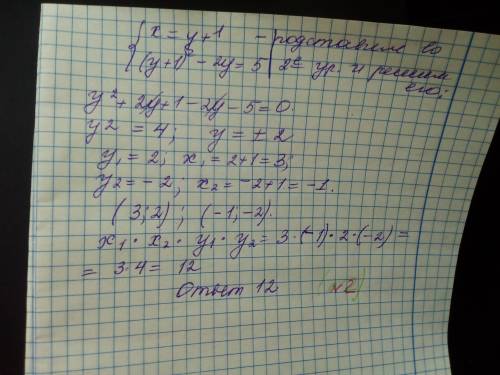 { x = y+1 - подставим во
(y+1)² - 2y = 5 | 2е ур. и решим его;
y² + 2y + 1 - 2y - 5 = 0
y2 = 4; y = ± 2
y₁ = 2; x₁ = 2+1 = 3;
y2 = -2; x₂ = -2+1 = -1.
(3; 2); (-1; -2).
x₁ · x₂ · y₁ · y₂ = 3·(-1)·2·(-2) =
= 3·4 = 12
Ответ 12 (№2)